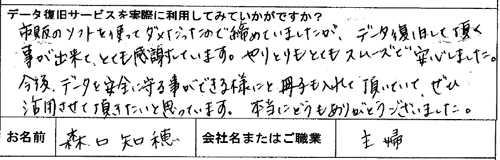 データ復旧サービスを実際に利用してみていかがですか？
市販のソフトを使ってダメだったので諦めていましたが、データ復旧して頂く
事が出来て、とても感謝しています。やりとりもとてもスムーズで安心しました。
今後、データを安全に守る事ができる様にと冊子も入れて頂いていて、ぜひ
活用させて頂きたいと思っています。本当にどうもありがとうございました。
お名前 森口知穂 会社名またはご職業 主婦